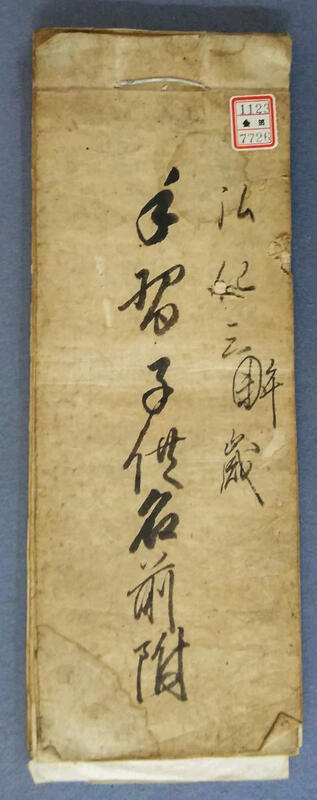 弘化三丙午歳
手習子供名前附
1123
7726